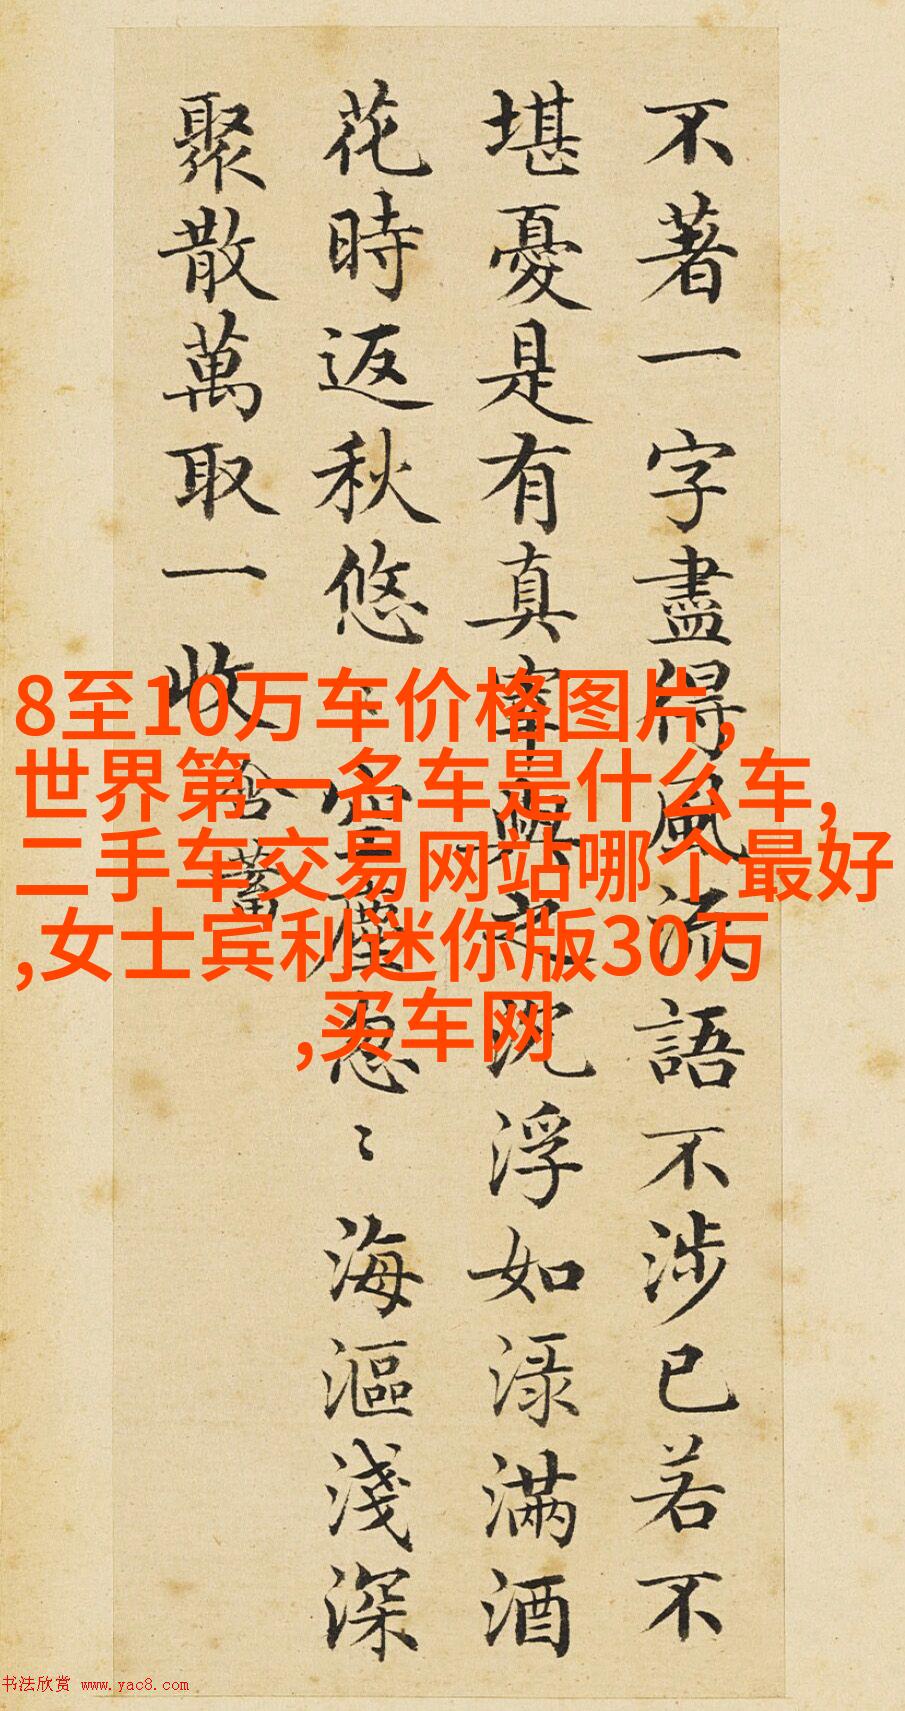 不著一字盡得風流語不涉已若不
堪憂是有真宰與之沈浮如渌滿酒
花時返秋悠〻空塵忽〻海漚淺深
聚散萬取一收
含蓄
8至10万车价格图片,
世界第一名车是什么车,
二手车交易网站哪个最好
,女士宾利迷你版30万
,买车网
书法欣赏 www.yac8.com